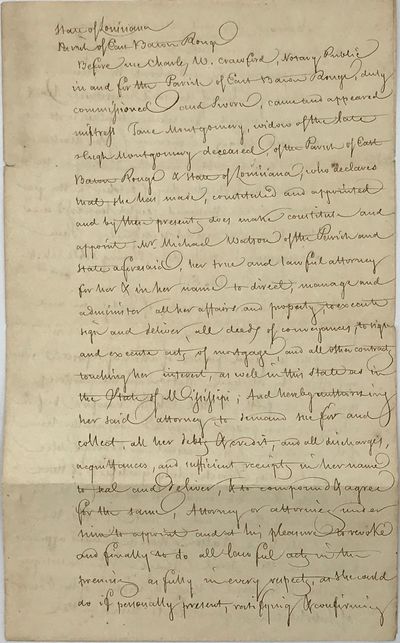 State of Louisiana
Parish of East Baton Rouge
Before me Charles W. Crawford, Notary Public
in and for the Parish of East Baton Rouge, duly
commissioned and sworn, came and appeared
mistress Jane Montgomery, widow of the late
Hugh Montgomery deceased, of the Parish of East
Baton Rouge & State of Louisiana, who declares
that she has made, constituted and appointed
and by these presents does make constitute and
appoint Mr Michael Watson of the Parish and
State aforesaid, her true and lawful attorney
for her & in her name to direct, manage and
administer all her affairs and property, to execute
sign and deliver, all deeds of conveyances, to sign
and execute acts of mortgage, and all other contracts
touching her interest, as well in this State as in
the State of Mississippi; And hereby authorising
her said attorney to demand sue for and
collect, all her debts & credits, and all discharges,
acquittances, and sufficient receipts in her name
to seal and deliver, & to compound & agree
for the same, Attorney or attornies under
him to appoint and at his pleasure to revoke
and finally to do all lawful acts in the
premises as fully in every respect, as she could
do if personally present, ratifying & confirming